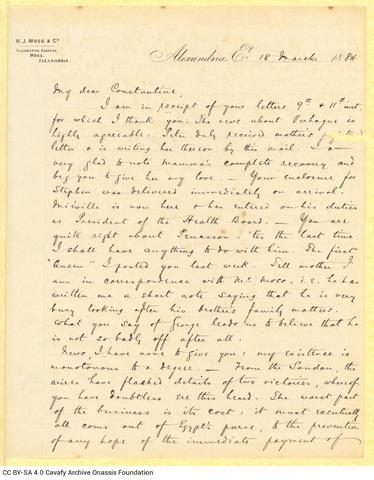 R.J. MOSS & Co.
TELEGRAPHIC ADDRESS,
MOSS,
ALEXANDRIA.
Alexandria, Et. 18 March 1884
My dear Constantine,
I am in receipt of your letters 9th & 11th inst.
for which I thank you. The news about Verhague is
highly agreeable: Peter duly received mother's
letter & is writing her thereon by this mail. I am
very glad to note Mamma's complete recovery and
beg you to give her my love. — Your enclosure for
Stephen was delivered immediately on arrival.
Miéville is now here & has entered on his duties
as President of the Health Board. — You are
quite right about Penasson: 'tis the last time
I shall have anything to do with him. The first
"Queen" I posted you last week. Tell mother I
am in correspondence with Mr Moss, i.e. he has
written me a short note saying that he is very
busy looking after his brother's family matters.
What you say of George leads us to believe that he
is not so badly off after all.
News, I have none to give you; my existence is
monotonous to a degree. — From the Soudan, the
wires have flashed details of two victories, whereof
you have doubtless ere this heard. The worst part
of the business is its cost: it must eventually
all come out of Egypt's purse, to the prevention
of any hope of the immediate payment of
CC BY-SA 4.0 Cavafy Archive Onassis Foundation